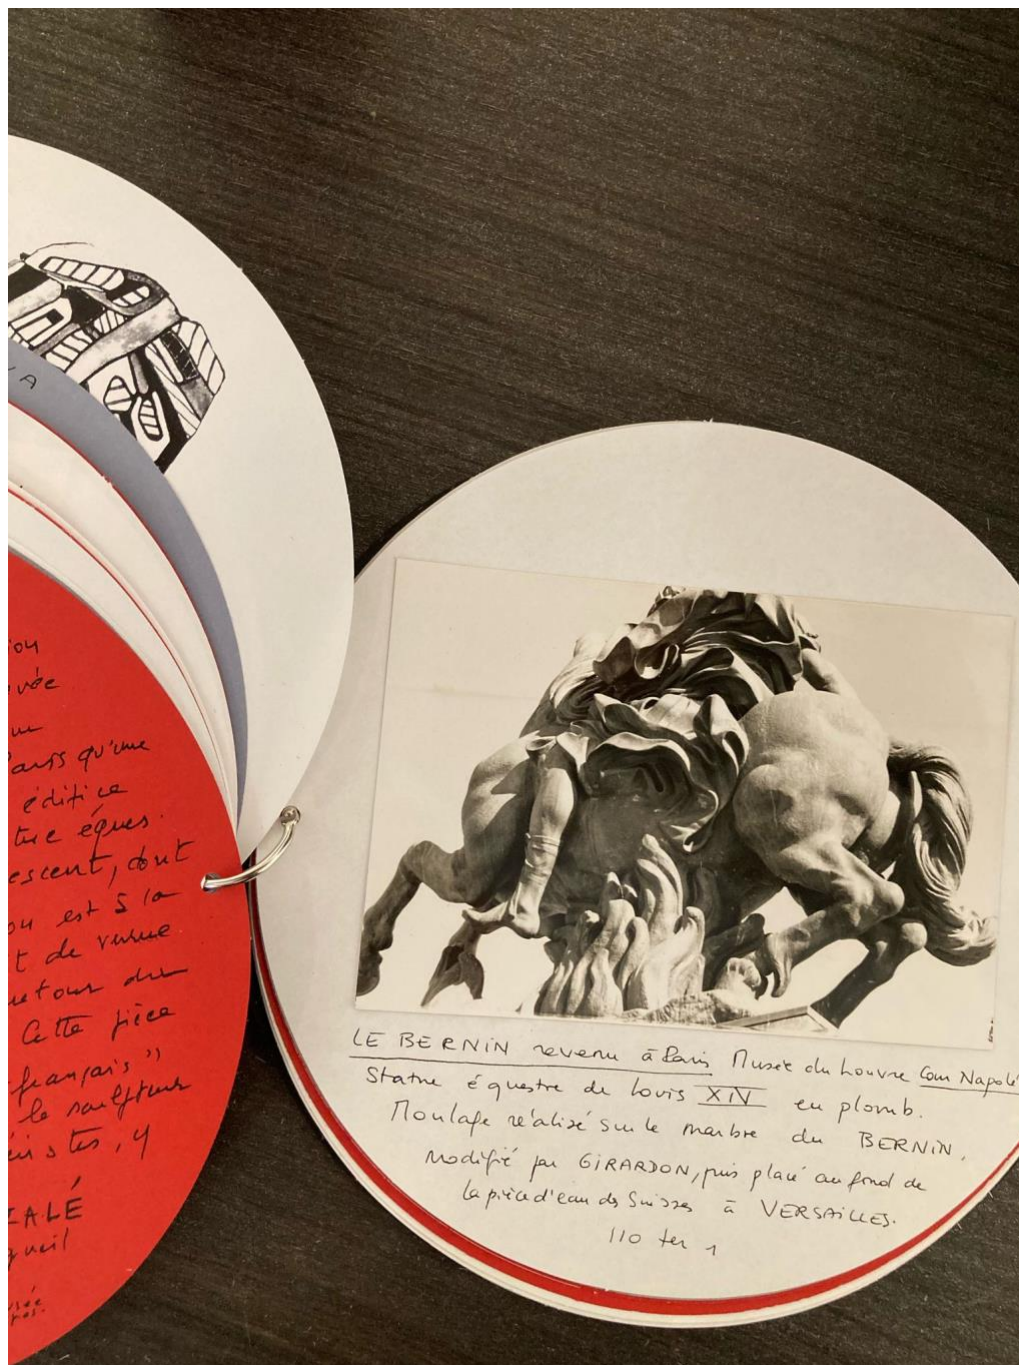 VA
ion
vée
un
Paris qu'une
édifice
tue éques.
escent, dont
on est à la
t de venue
retour du
Cette pièce
français"
le sculpteur
istes, y
ZALÉ
gueil
usée
LE BERNIN revenu à Paris Musée du Louvre Cour Napolé
Statue équestre de Louis XIV en plomb.
Moulage réalisé sur le marbre du BERNIN,
modifié par GIRARDON, puis placé au fond de
la pièce d'eau des Suisses à VERSAILLES.
110 ter 1